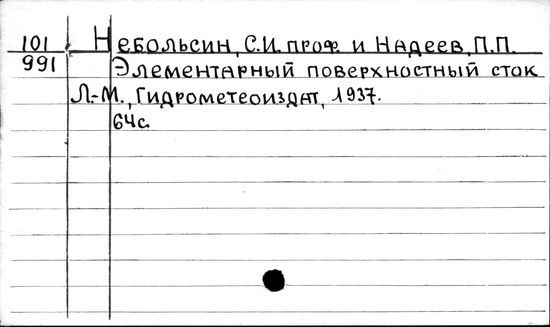 101 Небольсин, С.И. проф. и Надеев, П.П.
991 Элементарный поверхностный сток
Л.-М., Гидрометеоиздат, 1937.
64с.